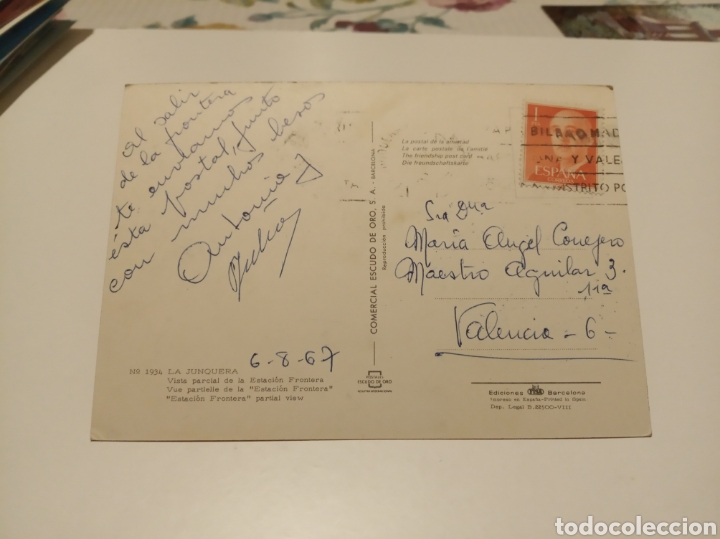 Al salir
de la frontera
te enviamos
ésta postal, junto
con muchos besos
Antonio y
6-8-67
Nº 1934 LA JUNQUERA
Vista parcial de la Estación Frontera
Vue partielle de la "Estación Frontera"
"Estación Frontera" partial view
COMERCIAL ESCUDO DE ORO, S. A. - BARCELONA
Reproducción prohibida
POSTALES
ESCUDO DE ORO
La postal de la amistad
La carte postale de l'amitié
The friendship post card
Die freundschaftskarte
ESPAÑA
BILBAO MAD
Y VALE
STRITO PO
Sra Dña
María Angel Conejero
Maestro Aguilar 3.
11ª
Valencia - 6 -
Ediciones Barcelona
Impreso en España-Printed in Spain
Dep. Legal B. -VIII
todocoleccion